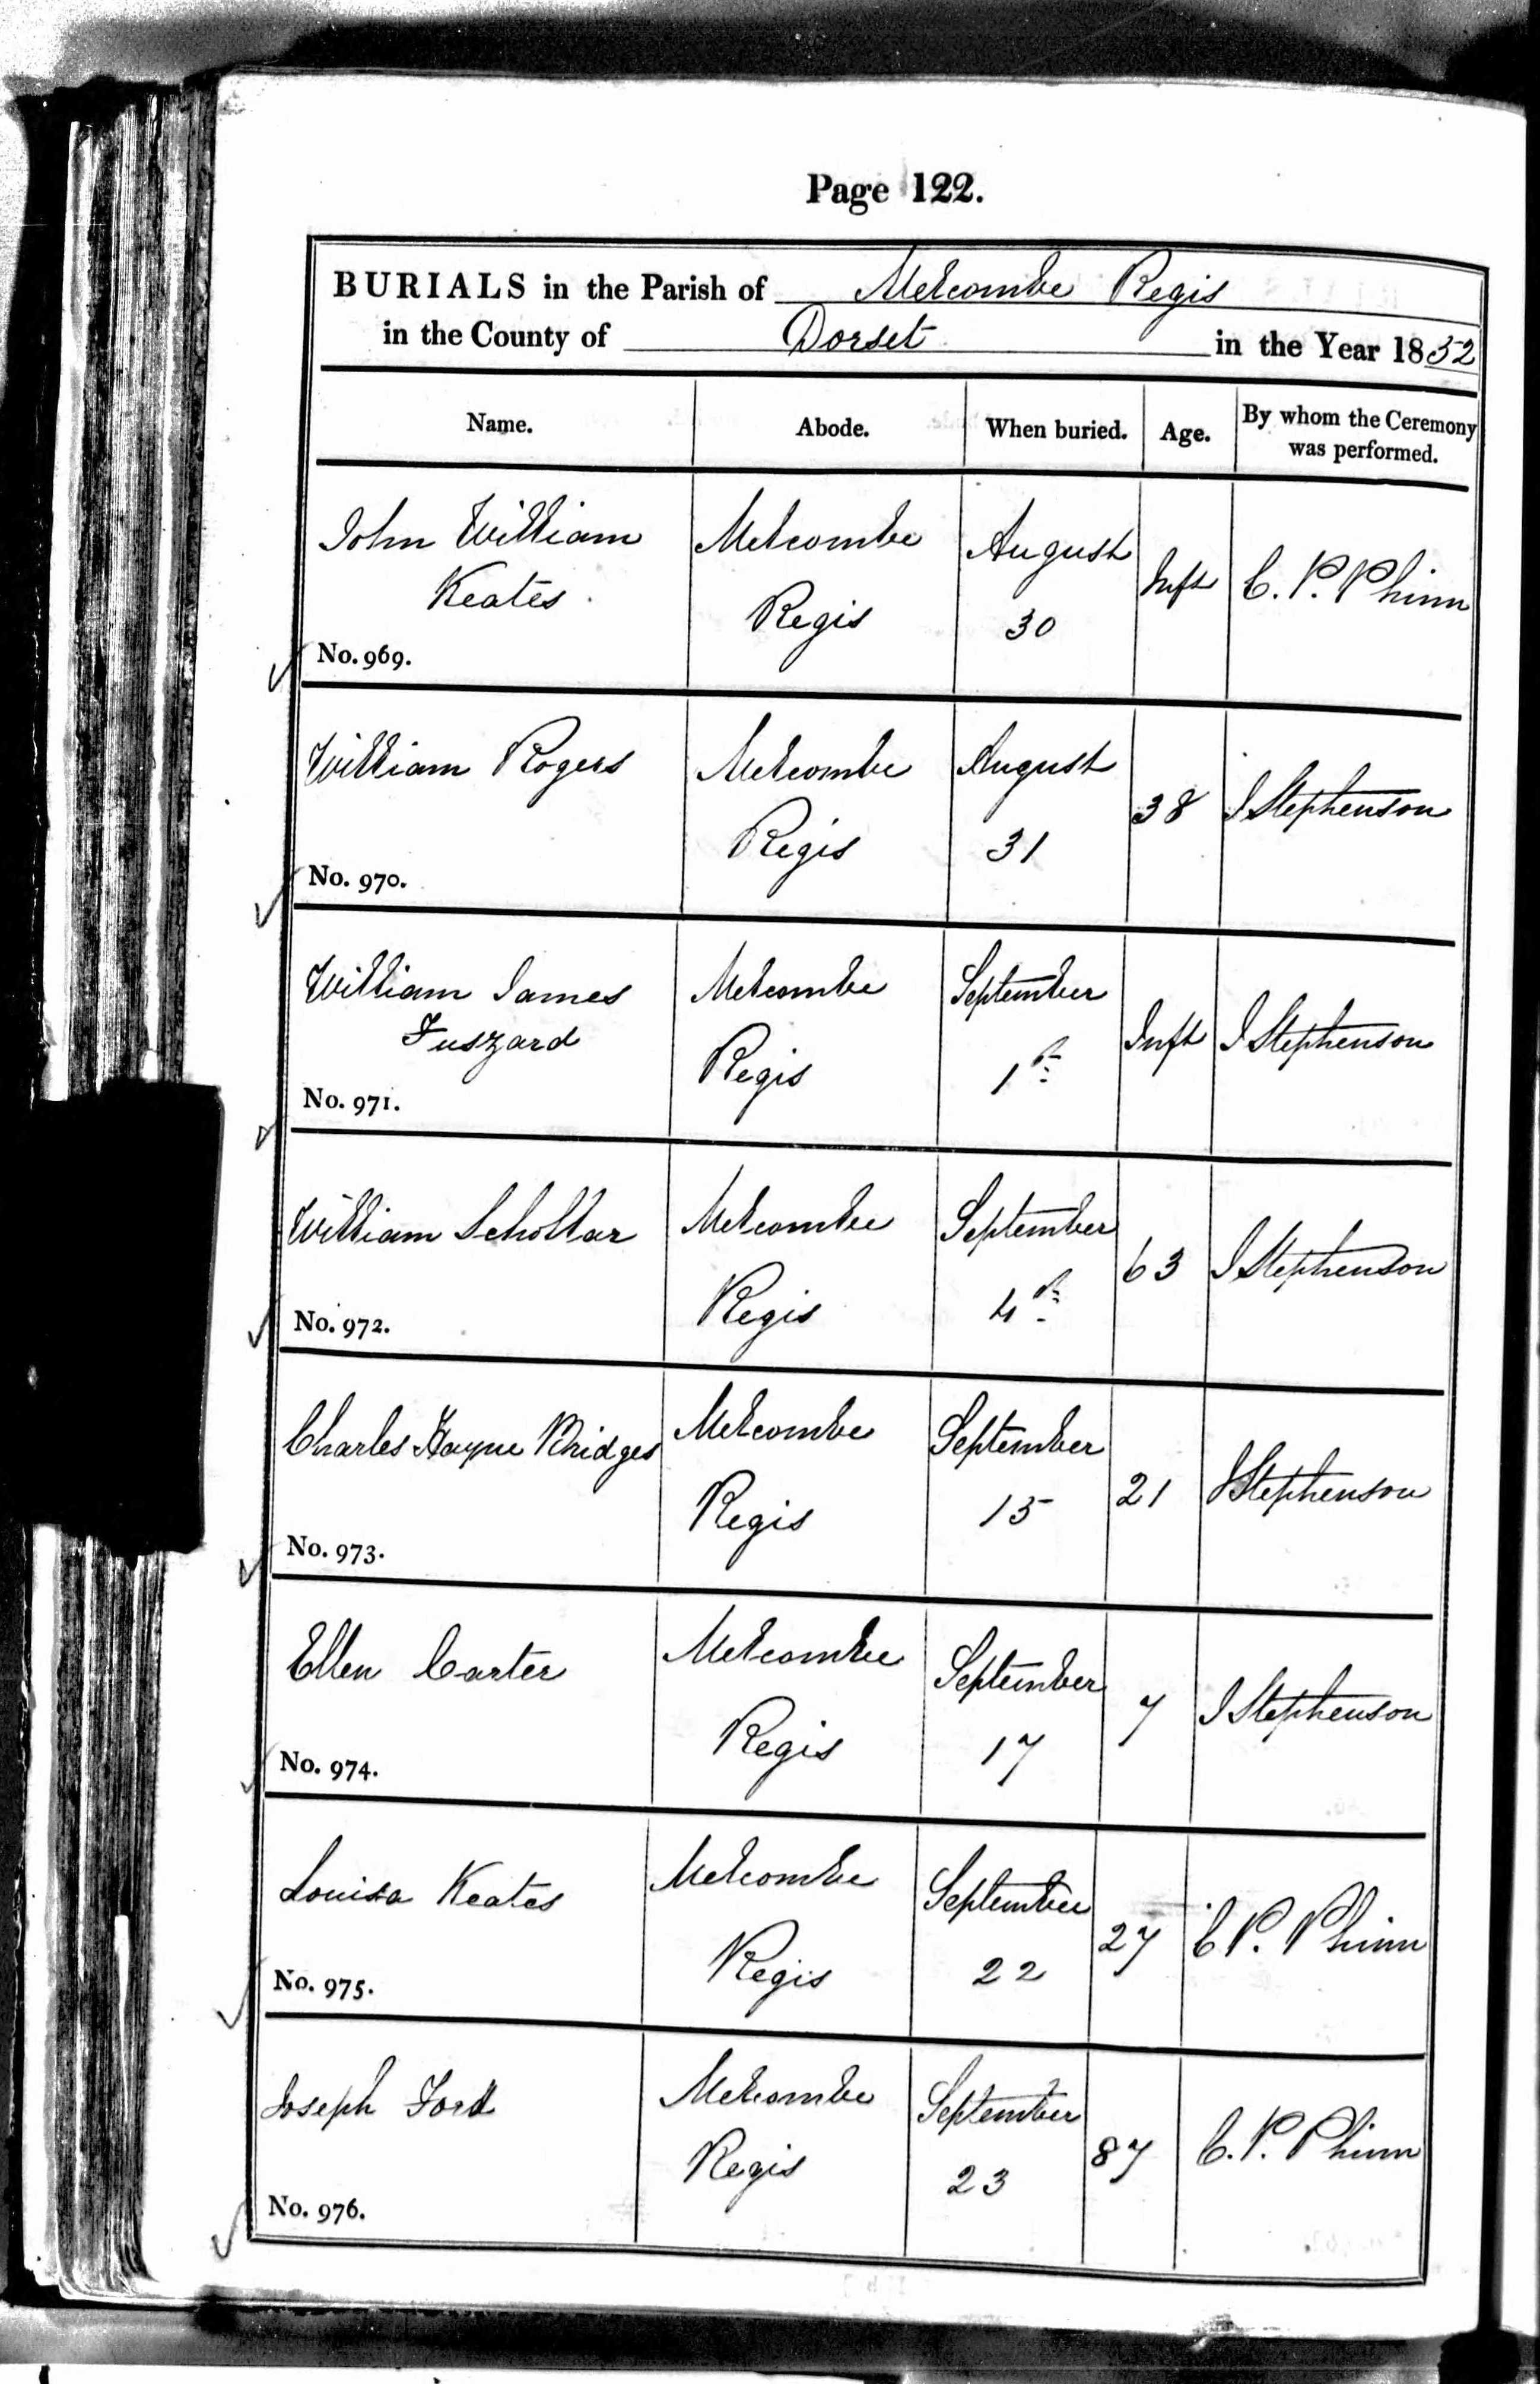 Page 122.
BURIALS in the Parish of Melcombe Regis
in the County of Dorset in the Year 1852
Name. Abode. When buried. Age. By whom the Ceremony was performed.
John William Melcombe August Inft C. P. Phinn
Keates Regis 30
No. 969.
William Rogers Melcombe August 38 J Stephenson
Regis 31
No. 970.
William James Melcombe September Inft J Stephenson
Fuszard Regis 1st
No. 971.
William Schollar Melcombe September 63 J Stephenson
Regis 4th
No. 972.
Charles Hayne Bridges Melcombe September 21 J Stephenson
Regis 15
No. 973.
Ellen Carter Melcombe September 7 J Stephenson
Regis 17
No. 974.
Louisa Keates Melcombe September 27 C P. Phinn
Regis 22
No. 975.
Joseph Ford Melcombe September 87 C. P. Phinn
Regis 23
No. 976.